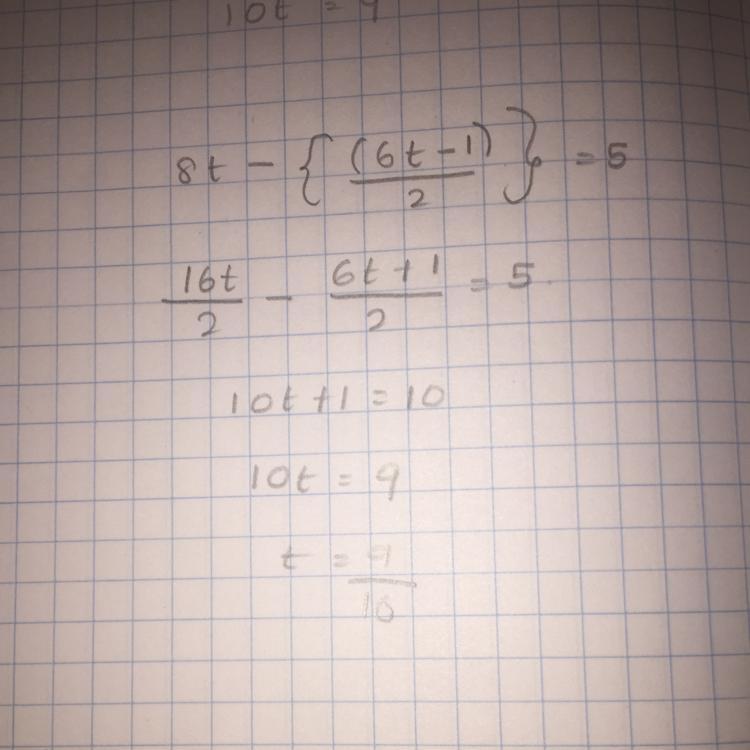 10t = 9
8t - { (6t-1) / 2 } = 5
16t / 2 - 6t+1 / 2 = 5
10t+1 = 10
10t = 9
t = 9 / 10